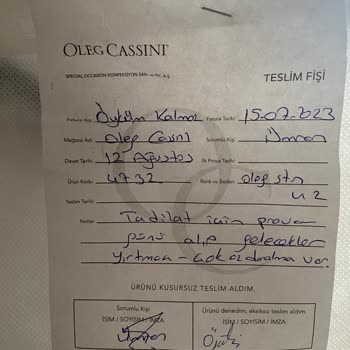 OLEG CASSINI
SPECIAL OCCASION KONFEKSİYON SAN. ve TİC. A.Ş.
TESLİM FİŞİ
Fatura Adı: Fatura Tarihi: 15-07-2023
Mağaza Adı: Oleg Casini Sorumlu Kişi:
Davet Tarihi: 12 Ağustos İlk Prova Tarihi:
Ürün Kodu: 4732 Renk ve Beden: oleg stn
42
Teslim Tarihi:
Notlar: Tadilat için prova
günü alıp gelecekler
Yırtmaç - var.
ÜRÜNÜ KUSURSUZ TESLİM ALDIM.
Sorumlu Kişi Ürünü denedim, eksiksiz teslim aldım.
İSİM / SOYİSİM / İMZA İSİM / SOYİSİM / İMZA